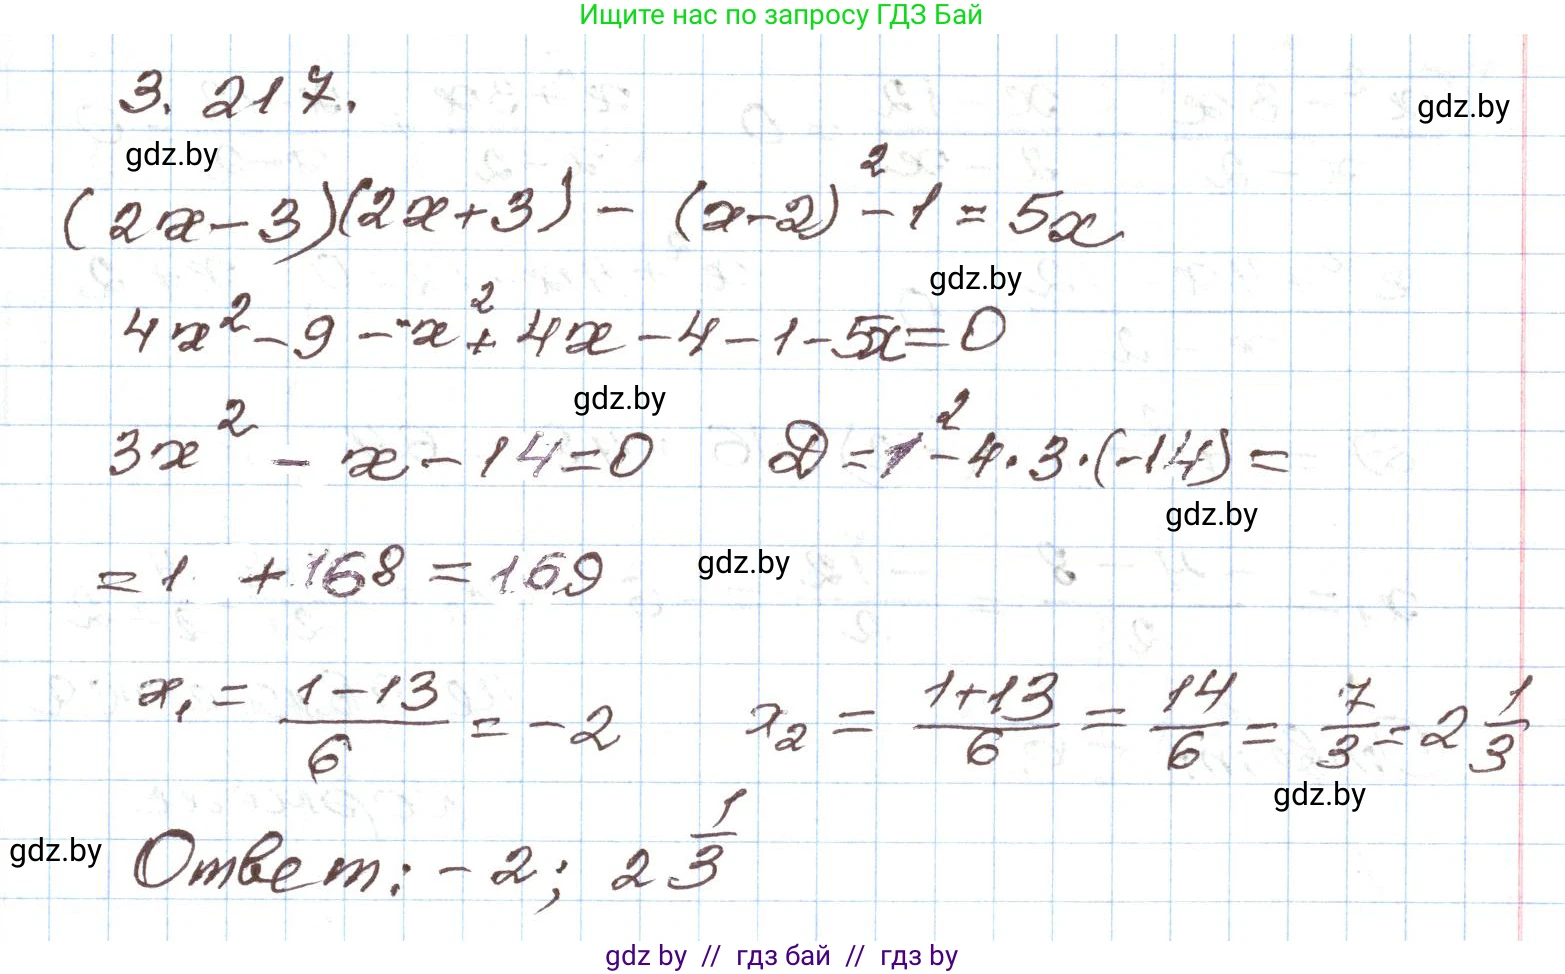 Ищите нас по запросу ГДЗ Бай
3. 217.
gdz.by
gdz.by
(2x-3)(2x+3) - (x-2)² - 1 = 5x
gdz.by
4x² - 9 - x² + 4x - 4 - 1 - 5x = 0
gdz.by
3x² - x - 14 = 0 D = 1² - 4·3·(-14) =
gdz.by
= 1 + 168 = 169
gdz.by
x₁ = (1-13)/6 = -2 x₂ = (1+13)/6 = 14/6 = 7/3 = 2 1/3
gdz.by
gdz.by
Ответ: -2; 2 1/3
gdz by // гдз бай // гдз by